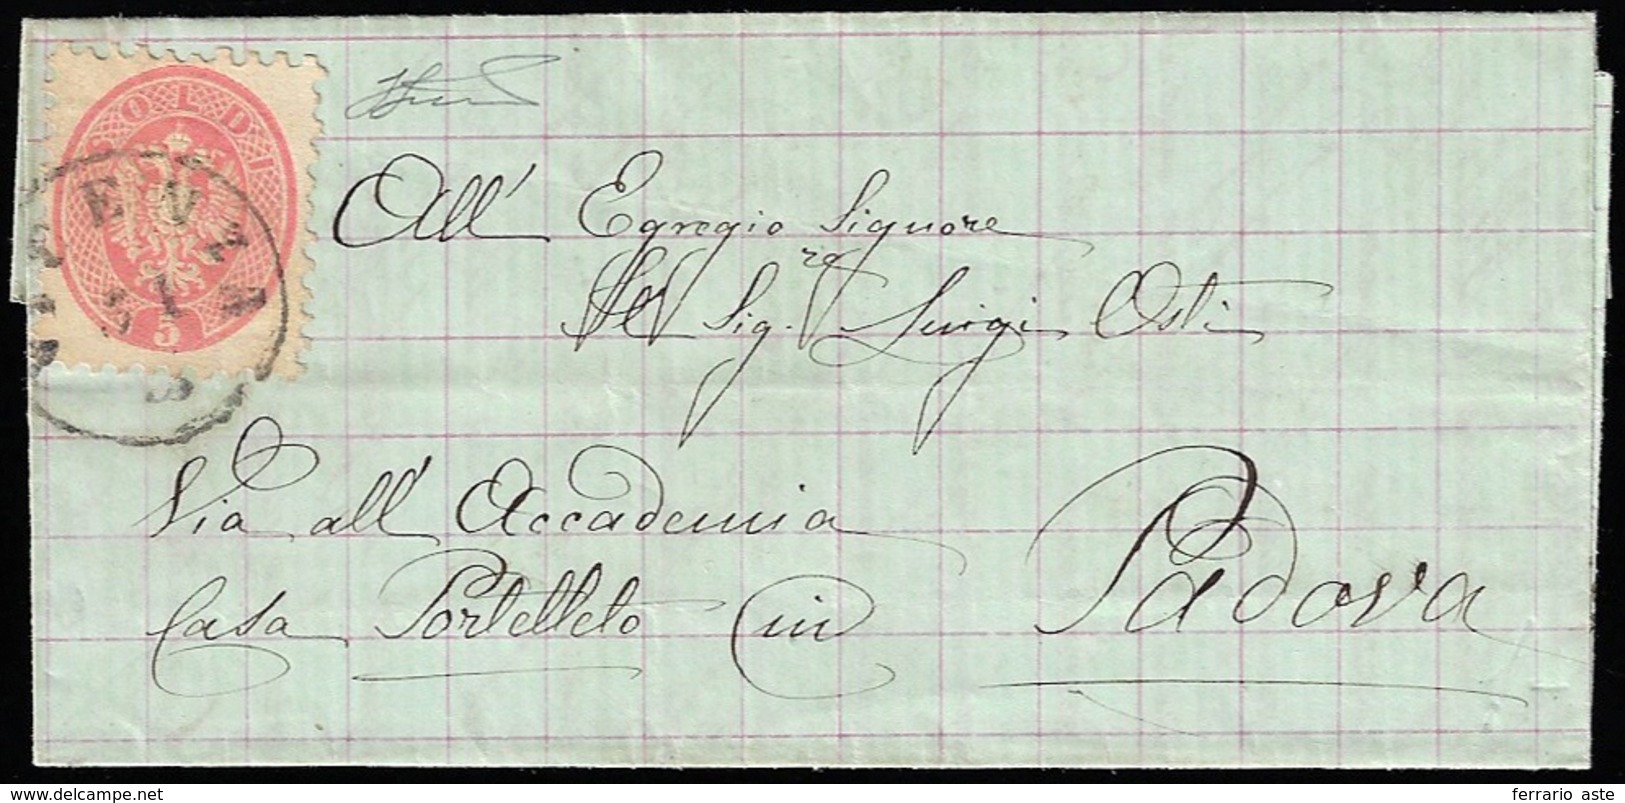 SOLDI
5
VICENZA
31
3
All' Egregio Signore
Il Sig.re Luigi Osti
Via all' Accademia
Casa Portelleto in Padova
www.delcampe.net
ferrario aste